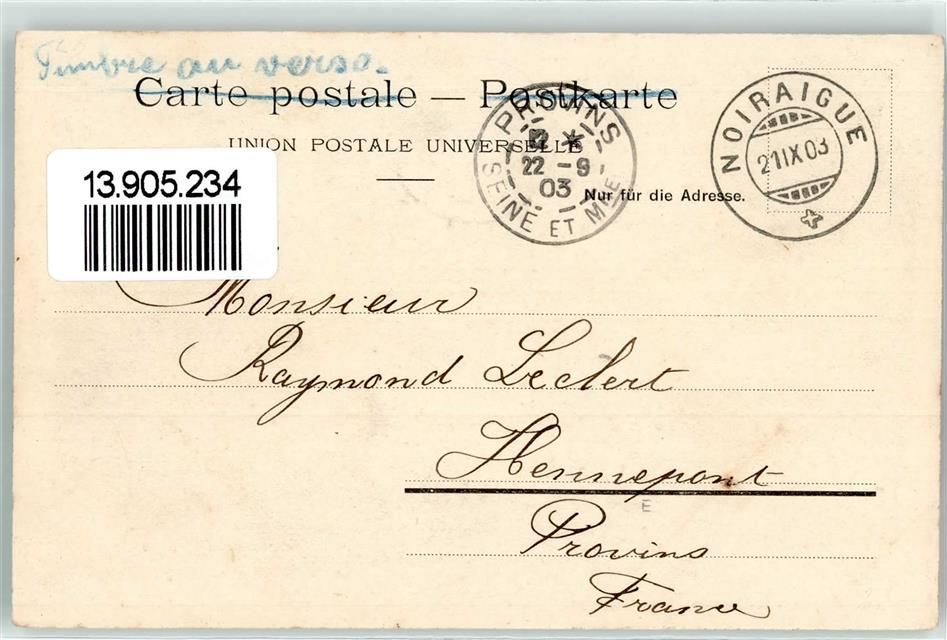 Timbre au verso.
Carte postale — Postkarte
UNION POSTALE UNIVERSELLE
Nur für die Adresse.
PROVINS
22 -9
03
SEINE ET MNE
NOIRAIGUE
21 IX 03
13.905.234
Monsieur
Raymond Leclert
Hennepont
E
Provins
France